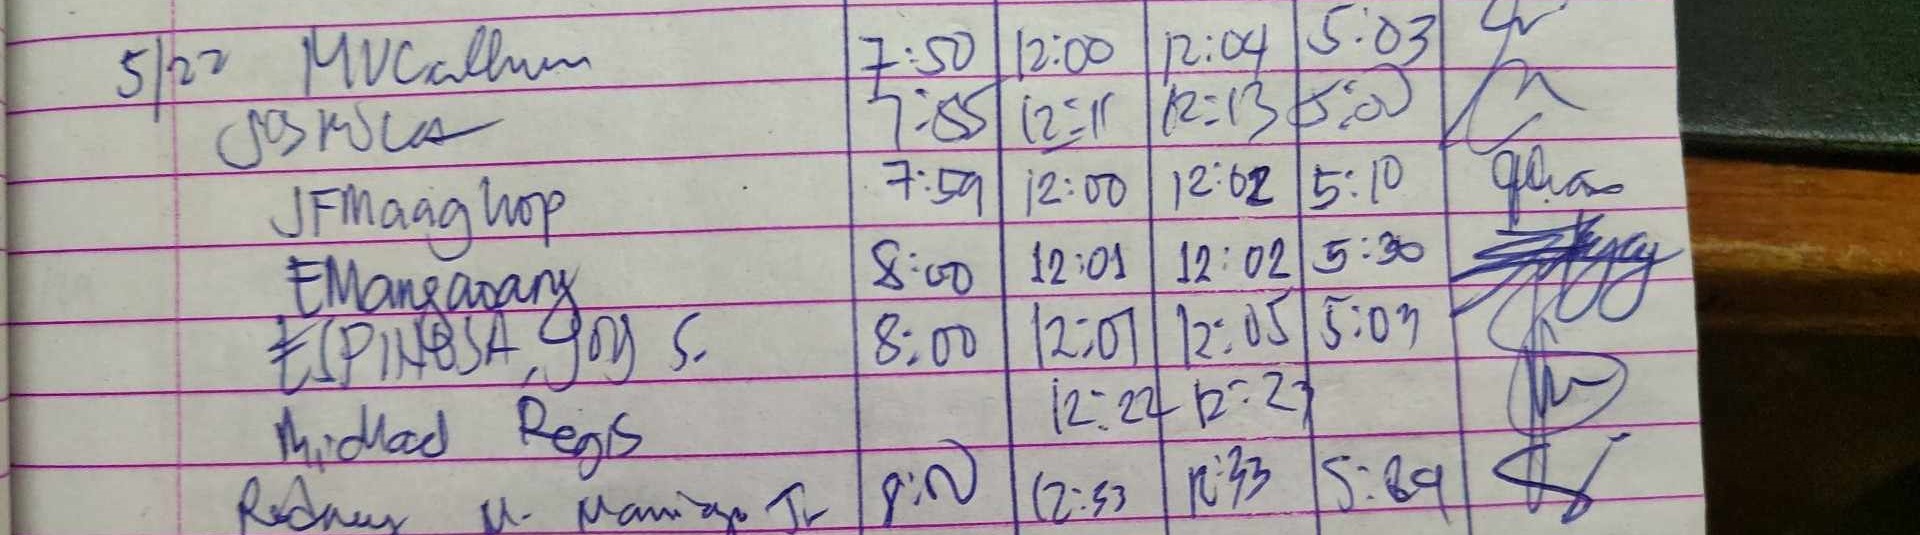 5/22 MVCallum 7:50 12:00 12:04 5:03
7:55 12:11 12:13 5:00
JFMaaghop 7:59 12:00 12:02 5:10
EMangaoang 8:00 12:01 12:02 5:30
ESPINOSA, JOY S. 8:00 12:01 12:05 5:03
Michael Regis 12:22 12:23
Rodney M. Jr 8:00 12:33 12:33